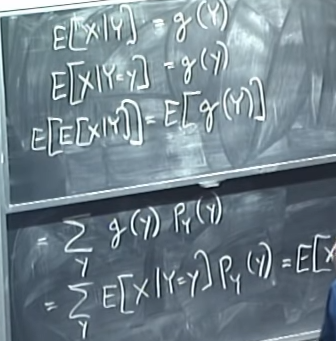 E[X|Y] = g(Y)
E[X|Y=y] = g(y)
E[E[X|Y]] = E[g(Y)]
= Σ_y g(y) P_Y(y)
= Σ_y E[X|Y=y] P_Y(y) = E[X